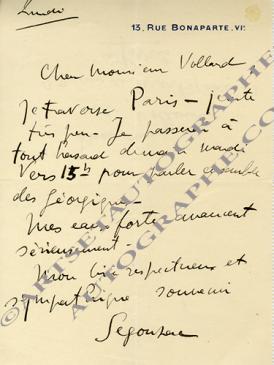 Lundi
13, RUE BONAPARTE. VIᵉ
Cher Monsieur Vollard
Je traverse Paris - 
très peu - Je passerai à
tout hasard demain mardi
vers 15h pour parler ensemble
des Géorgiques -
Mes eaux fortes avancent
sérieusement -
Mon bien respectueux et
sympathique souvenir
Segonzac
©ARTSETAUTOGRAPHES
AUTOGRAPHE.COM